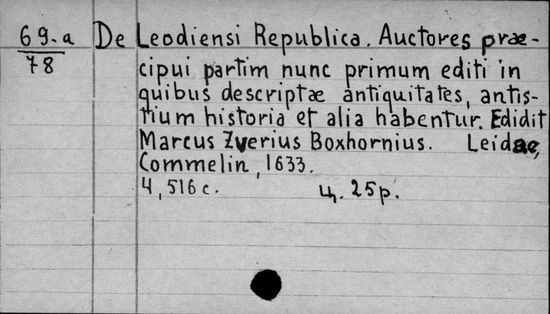 69-a De Leodiensi Republica. Auctores præ-
78 cipui partim nunc primum editi in
quibus descriptæ antiquitates, antis-
tium historia et alia habentur. Edidit
Marcus Zverius Boxhornius. Leidae,
Commelin, 1633.
4, 516 c. ц. 25 p.